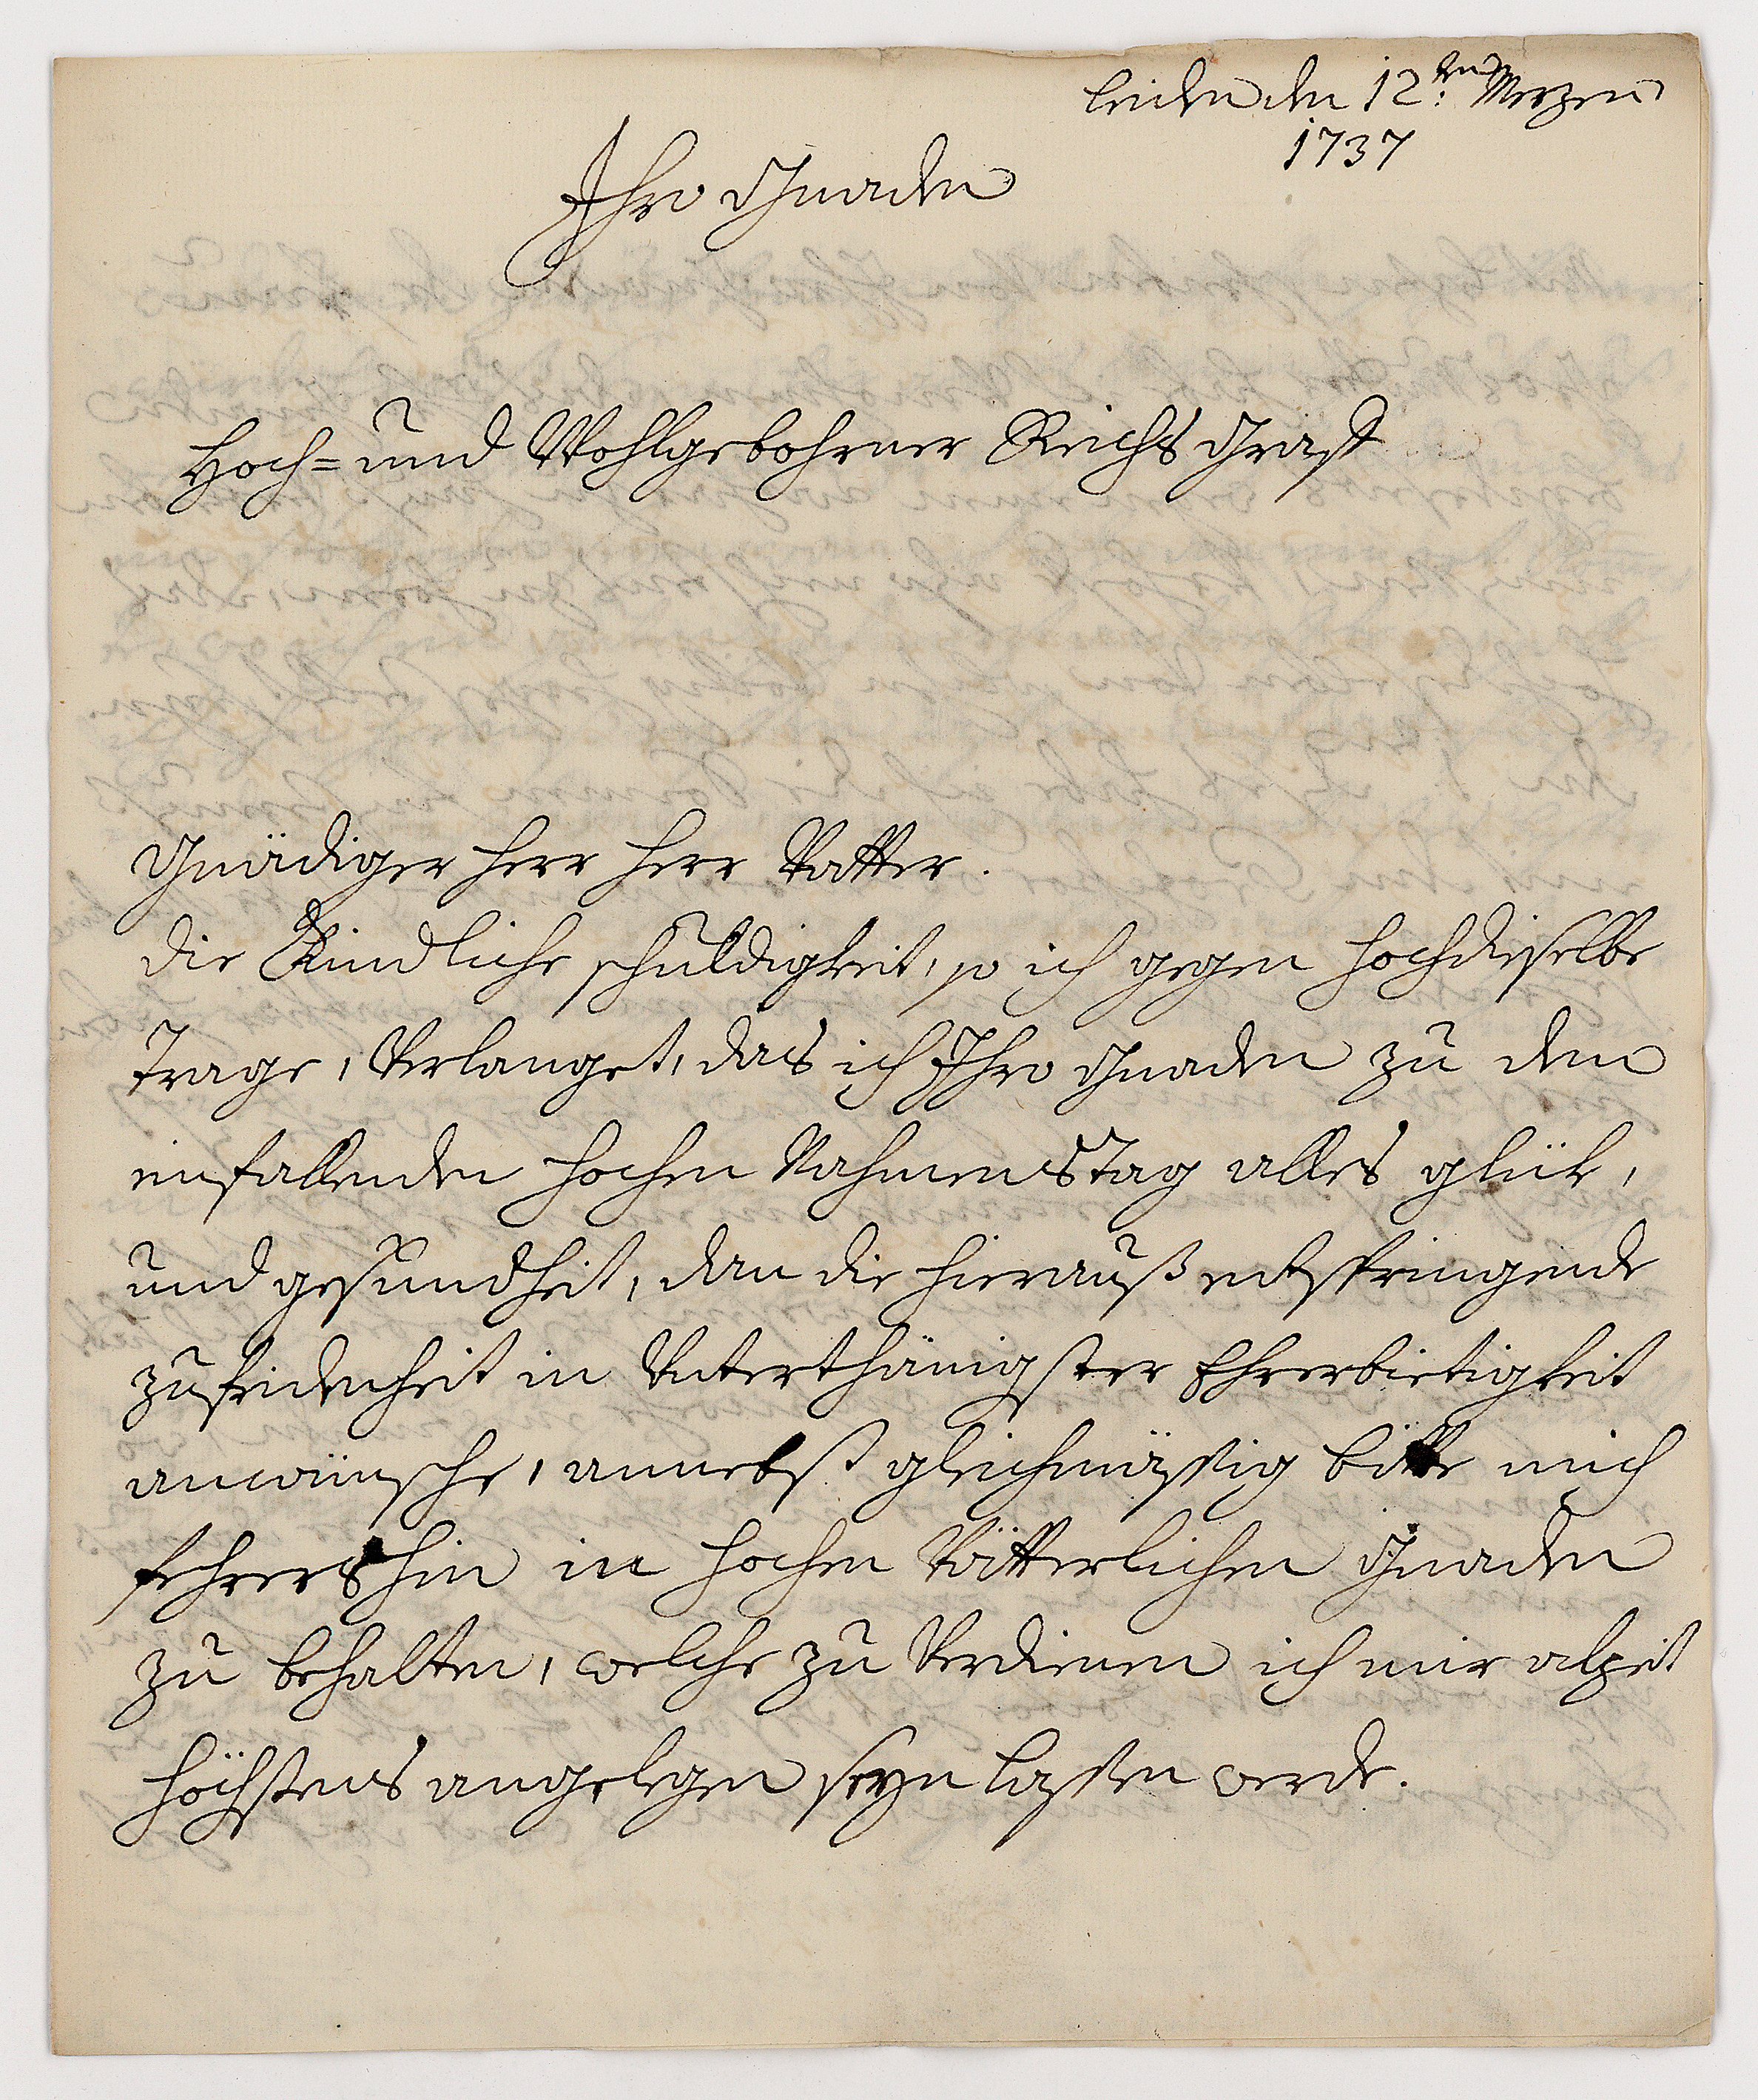 Leiden den 12ten: Merzen
1737
Ihro Gnaden
Hoch= und Wohlgebohrner Reichs Graff
Gnädiger Herr Herr Vatter.
die Kindliche schuldigkeit, so ich gegen Hochdieselbe
trage, Verlanget, das ich Ihro Gnaden zu dem
einfallenden Hochen Nahmens Tag alles glük,
und gesundheit, dan die hierauß entspringende
zufridenheit in Unterthänigster Ehrerbietigkeit
anwünsche, annebst gleichmässig bitte mich
fehrershin in Hochen Vätterlichen Gnaden
zu behalten, welche zu Verdienen ich mir alzeit
höchstens angelegen seyn lassen werde.